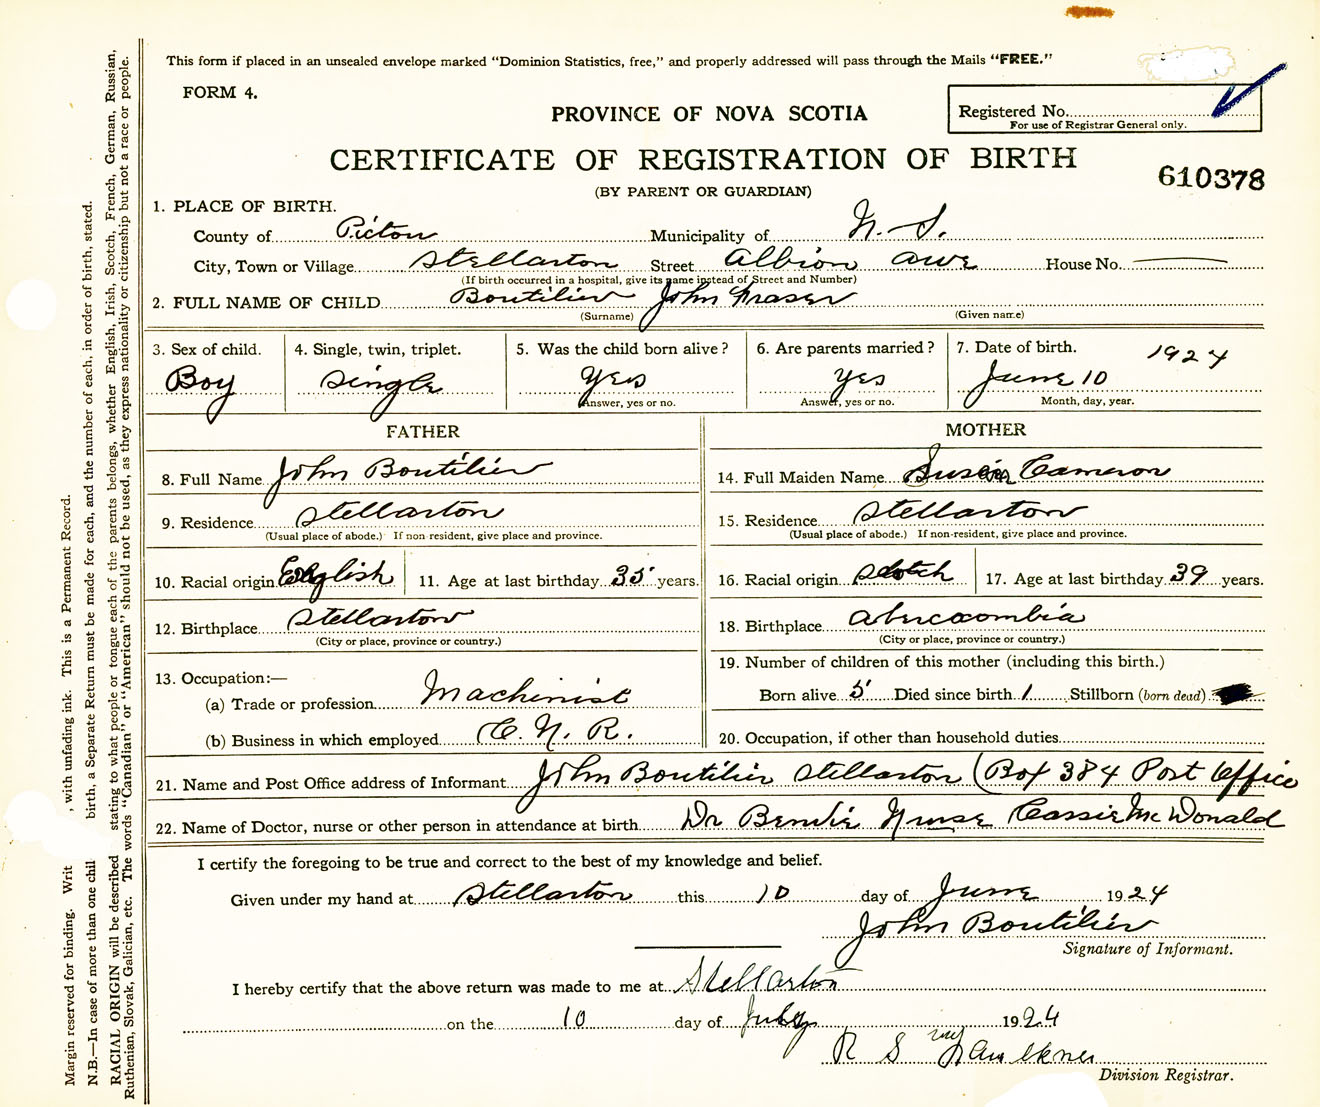 This form if placed in an unsealed envelope marked “Dominion Statistics, free,” and properly addressed will pass through the Mails “FREE.”
FORM 4.
PROVINCE OF NOVA SCOTIA
Registered No.
For use of Registrar General only.
CERTIFICATE OF REGISTRATION OF BIRTH
610378
(BY PARENT OR GUARDIAN)
1. PLACE OF BIRTH.
County of Picton Municipality of N. S.
City, Town or Village Stellarton Street Albion awe House No.
(If birth occurred in a hospital, give its name instead of Street and Number)
2. FULL NAME OF CHILD Boutilier John Fraser
(Surname) (Given name)
3. Sex of child. 4. Single, twin, triplet. 5. Was the child born alive? 6. Are parents married? 7. Date of birth. 1924
Boy Single Yes Yes June 10
Answer, yes or no. Answer, yes or no. Month, day, year.
FATHER MOTHER
8. Full Name John Boutilier 14. Full Maiden Name Cameron
9. Residence Stellarton 15. Residence Stellarton
(Usual place of abode.) If non-resident, give place and province. (Usual place of abode.) If non-resident, give place and province.
10. Racial origin English 11. Age at last birthday 35 years. 16. Racial origin Scotch 17. Age at last birthday 39 years.
12. Birthplace Stellarton 18. Birthplace Abercoombia
(City or place, province or country.) (City or place, province or country.)
13. Occupation:— 19. Number of children of this mother (including this birth.)
(a) Trade or profession Machinist Born alive 5 Died since birth 1 Stillborn (born dead)
(b) Business in which employed C. N. R. 20. Occupation, if other than household duties
21. Name and Post Office address of Informant John Boutilier Stellarton (Box 384 Post Office
22. Name of Doctor, nurse or other person in attendance at birth Dr Nurse Cassie McDonald
I certify the foregoing to be true and correct to the best of my knowledge and belief.
Given under my hand at Stellarton this 10 day of June 1924
John Boutilier
Signature of Informant.
I hereby certify that the above return was made to me at Stellarton
on the 10 day of July 1924
R S Faulkner
Division Registrar.
Margin reserved for binding. Writ , with unfading ink. This is a Permanent Record.
N.B.—In case of more than one chil birth, a Separate Return must be made for each, and the number of each, in order of birth, stated.
RACIAL ORIGIN will be described stating to what people or tongue each of the parents belongs, whether English, Irish, Scotch, French, German, Russian,
Ruthenian, Slovak, Galician, etc. The words “Canadian” or “American” should not be used, as they express nationality or citizenship but not a race or people.